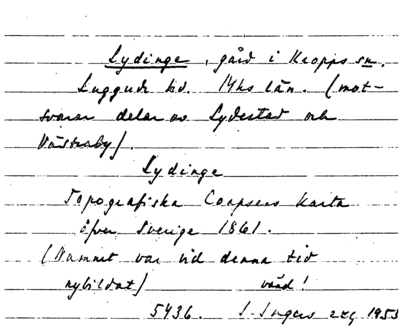 Lydinge, gård i Kropps sn.
Luggude hd. Mhs län. (mot-
svarar delar av Lydestad och
Västraby).
Lydinge
Topografiska Corpsens Karta
öfver Sverige 1861.
(Namnet var vid denna tid
nybildat) vänd!
5436. I. Ingers 1953